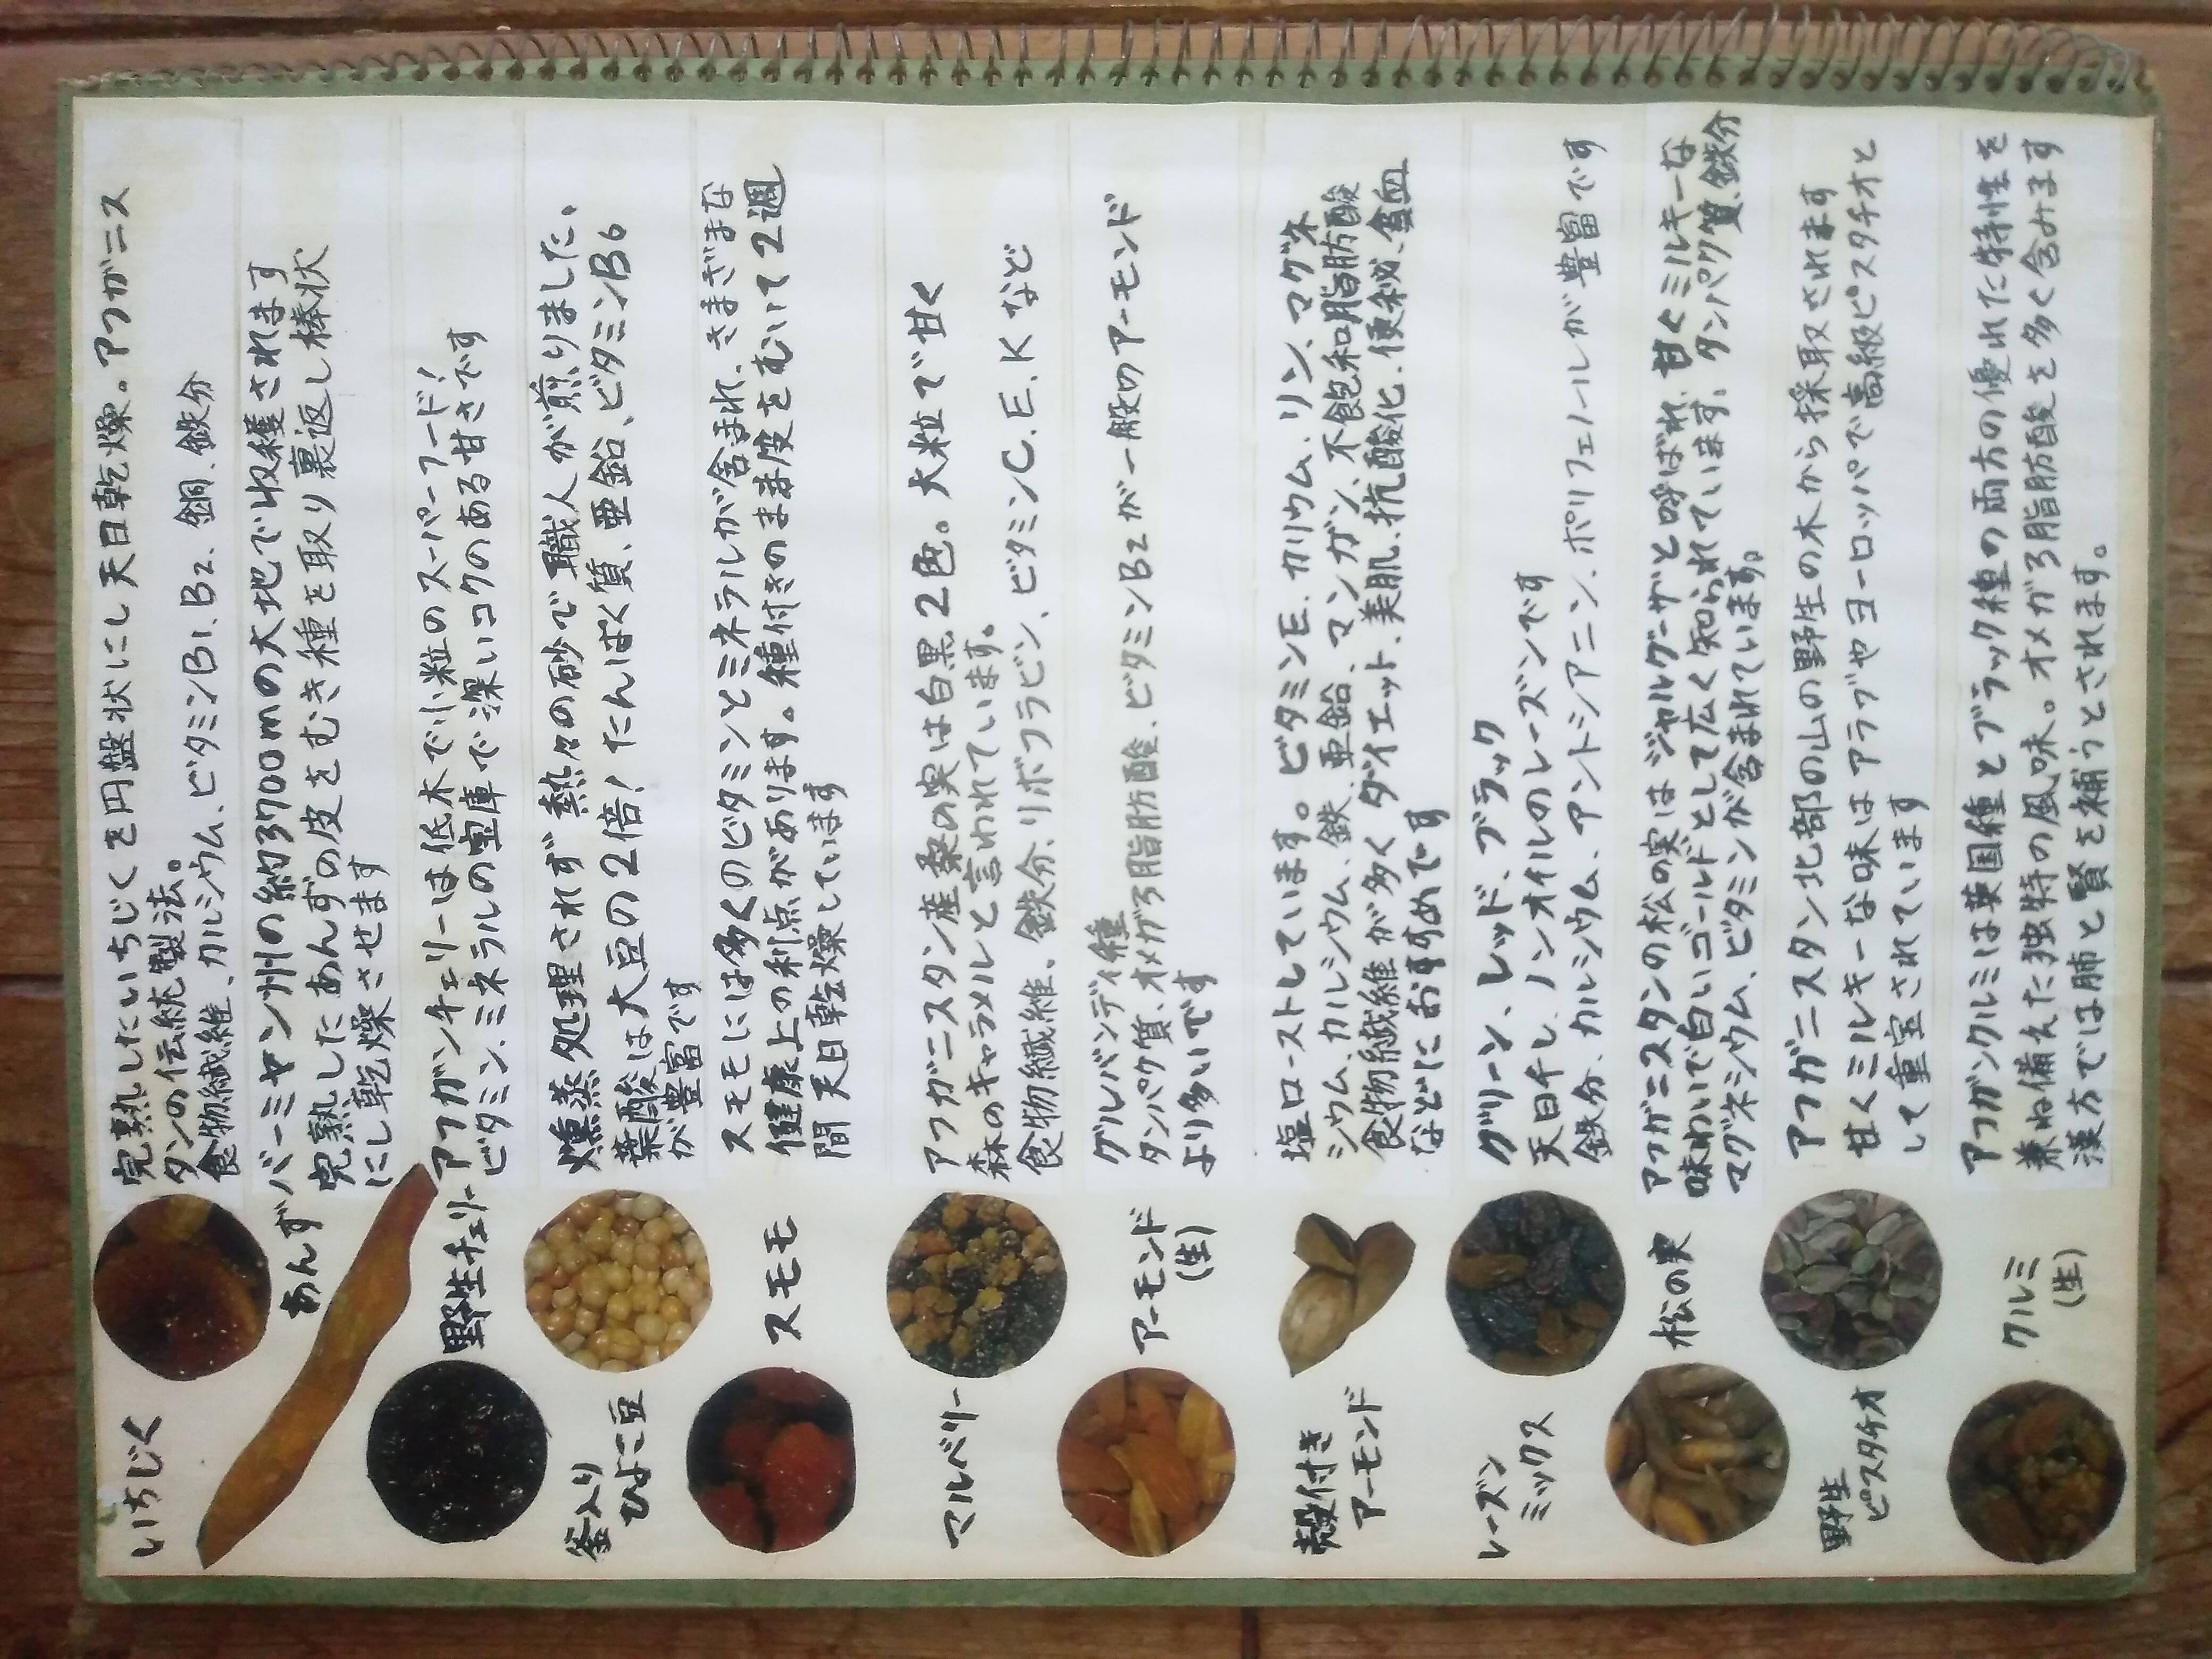 いちじく
完熟したいちじくを円盤状にし天日乾燥。アフガニス
タンの伝統製法。
食物繊維、カルシウム、ビタミンB1、B2、銅、鉄分
あんず
バーミヤン州の約3700mの大地で収穫されます
完熟したあんずの皮をむき種を取り裏返し棒状
にし乾燥させます
野生チェリー
アフガンチェリーは低木で小粒のスーパーフード!
ビタミン、ミネラルの宝庫で深いコクのある甘さです
釜入り
ひよこ豆
燻蒸処理されず熱々の砂で職人が煎りました。
葉酸は大豆の2倍!たんぱく質、亜鉛、ビタミンB6
が豊富です
スモモ
スモモには多くのビタミンとミネラルが含まれ、さまざまな
健康上の利点があります。種付きのまま皮をむいて2週
間天日乾燥しています
マルベリー
アフガニスタン産桑の実は白黒2色。大粒で甘く
森のキャラメルと言われています。
食物繊維、鉄分、リボフラビン、ビタミンC、E、Kなど
アーモンド
(生)
グルバンディ種
タンパク質、オメガ3脂肪酸、ビタミンB2が一般のアーモンド
より多いです
殻付き
アーモンド
塩ローストしています。ビタミンE、カリウム、リン、マグネ
シウム、カルシウム、鉄、亜鉛、マンガン、不飽和脂肪酸
食物繊維が多くダイエット、美肌、抗酸化、便秘、貧血
などにおすすめです
レーズン
ミックス
グリーン、レッド、ブラック
天日干し、ノンオイルのレーズンです
鉄分、カルシウム、アントシアニン、ポリフェノールが豊富です
松の実
アフガニスタンの松の実はジャルグーザと呼ばれ、甘くミルキーな
味わいで白いゴールドとして広く知られています。タンパク質、鉄分
マグネシウム、ビタミンが含まれています。
野生
ピスタチオ
アフガニスタン北部の山の野生の木から採取されます
甘くミルキーな味はアラブやヨーロッパで高級ピスタチオと
して重宝されています
クルミ
(生)
アフガンクルミは英国種とブラック種の両方の優れた特性を
兼ね備えた独特の風味。オメガ3脂肪酸を多く含みます
漢方では肺と腎を補うとされます。